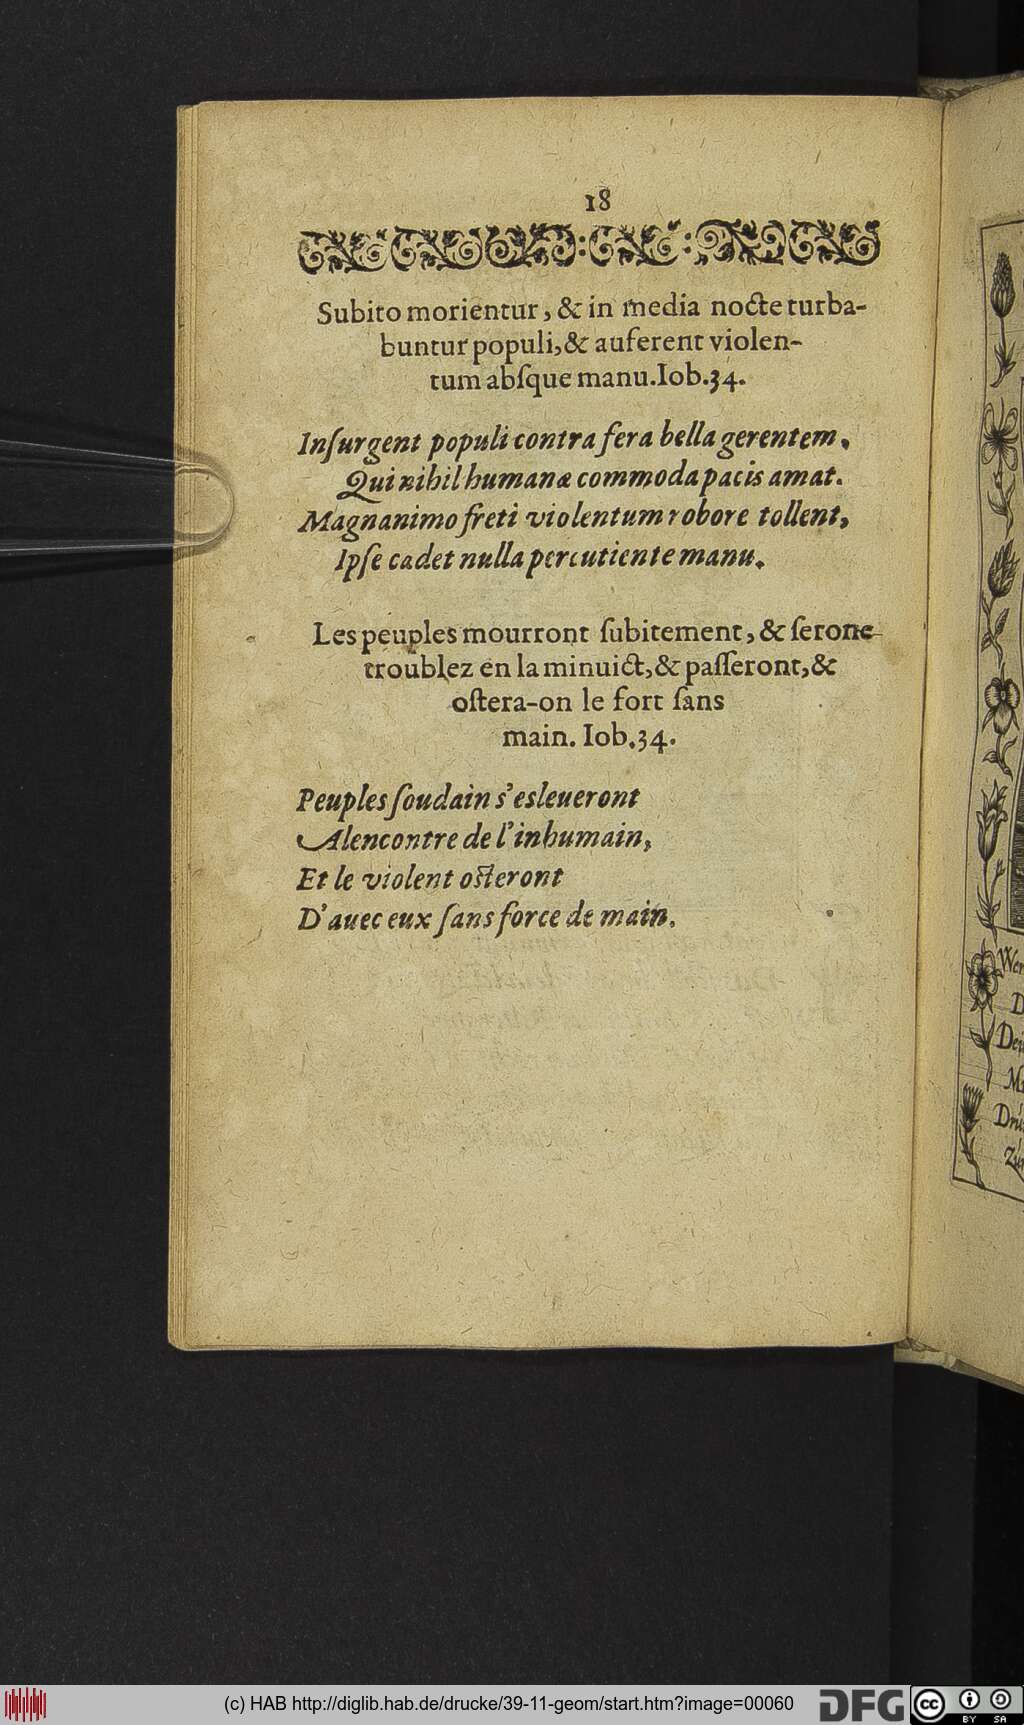 18
Subito morientur, & in media nocte turba-
buntur populi, & auferent violen-
tum abſque manu. Iob. 34.
Inſurgent populi contra fera bella gerentem.
Qui nihil humanæ commoda pacis amat.
Magnanimo freti violentum robore tollent,
Ipſe cadet nulla percutiente manu.
Les peuples mourront ſubitement, & ſeront
troublez en la minuict, & paſſeront, &
oſtera-on le fort ſans
main. Iob. 34.
Peuples ſoudain s'esleueront
Alencontre de l'inhumain,
Et le violent oſteront
D'auec eux ſans force de main.
Wer
D
Dei
M
Drü
Zü
(c) HAB http://diglib.hab.de/drucke/39-11-geom/start.htm?image=00060
DFG
cc
BY SA